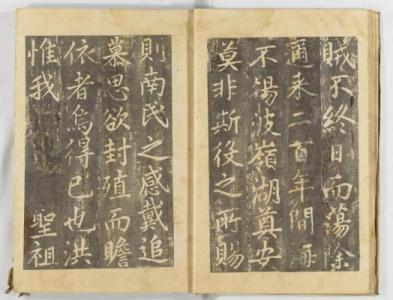 賊不終日而蕩除
爾来二百年間海
不揚波嶺湖奠安
莫非斯役之所賜
則南民之感戴追
慕思欲封殖而瞻
依者烏得已也洪
惟我 聖祖